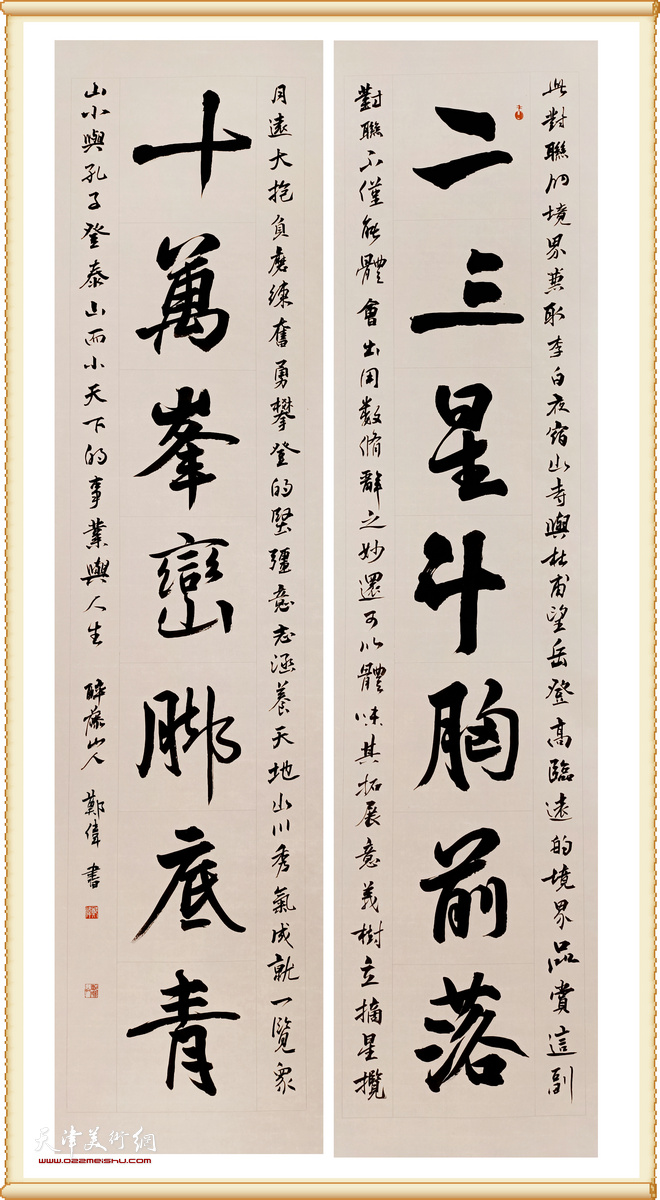 此對聯的境界兼取李白夜宿山寺與杜甫望岳登高臨遠的境界品賞這副
二三星斗胸前落
對聯不僅能體會出用數脩辭之妙還可以體味其拓展意義樹立摘星攬
月遠大抱負磨練奮勇攀登的堅彊意志涵養天地山川秀氣成就一覽衆
十萬峯巒脚底青
山小與孔子登泰山而小天下的事業與人生 醉藤山人 鄭偉 書
天津美術網
www.022meishu.com